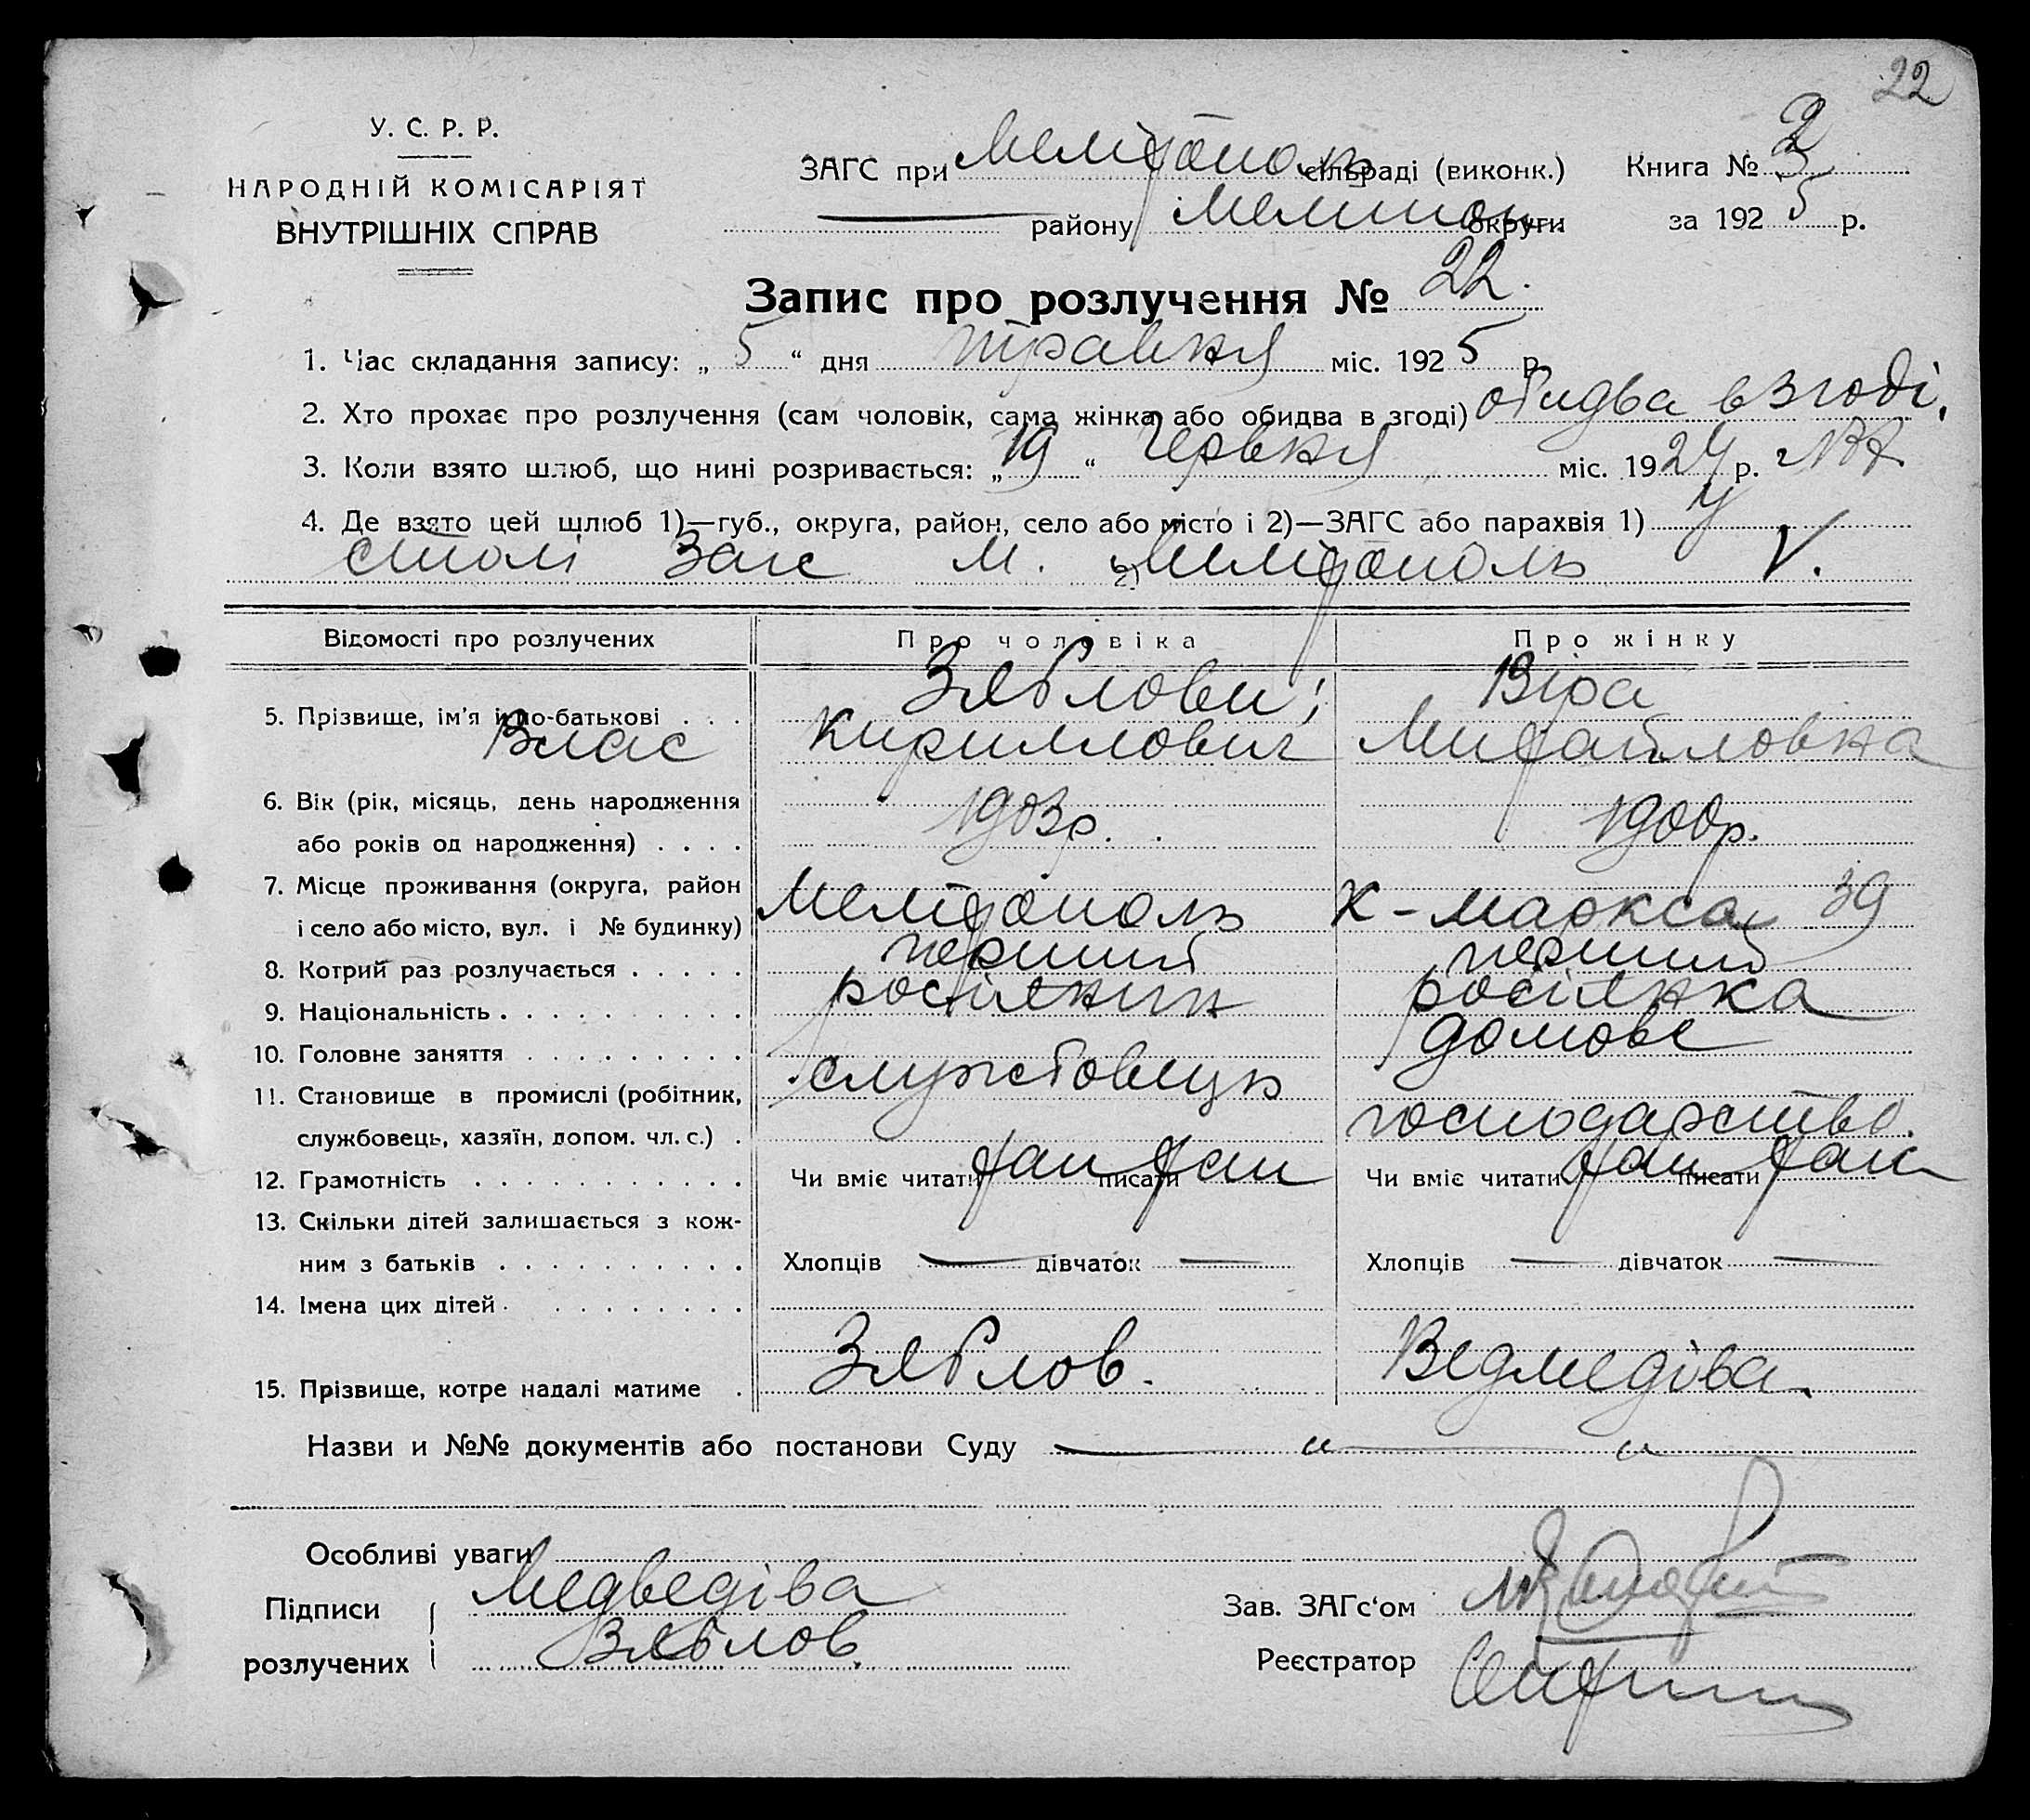 22
У. С. Р. Р.
НАРОДНІЙ КОМІСАРІЯТ
ВНУТРІШНІХ СПРАВ
ЗАГС при Мелітополь сільраді (виконк.) Книга № 3
району Мелитоп. округи за 1925 р.
Запис про розлучення № 22.
1. Час складання запису: „5“ дня травня міс. 1925 р.
2. Хто прохає про розлучення (сам чоловік, сама жінка або обидва в згоді) обидва в згоді.
3. Коли взято шлюб, що нині розривається: „19“ червня міс. 1924 р.
4. Де взято цей шлюб 1)—губ., округа, район, село або місто і 2)—ЗАГС або парахвія 1) у
столі Загс м. 2) Мелітополь V.
Відомості про розлучених Про чоловіка Про жінку
5. Прізвище, ім'я і по-батькові . . . Зяблови; Віра
Влас Кириллович Михайловна
6. Вік (рік, місяць, день народження
або років од народження) . . . . 1903р. 1900р.
7. Місце проживання (округа, район
і село або місто, вул. і № будинку) Мелітополь К-Маркса 39
8. Котрий раз розлучається . . . . . перший перший
9. Національність . . . . . . . . . . росіянин росіянка
10. Головне заняття . . . . . . . . . домове
11. Становище в промислі (робітник, службовець
службовець, хазяїн, допом. чл. с.) . господарство.
12. Грамотність . . . . . . . . . . . Чи вміє читати так писати так Чи вміє читати так писати так
13. Скільки дітей залишається з кож-
ним з батьків . . . . . . . . . . Хлопців — дівчаток — Хлопців — дівчаток —
14. Імена цих дітей . . . . . . . . .
15. Прізвище, котре надалі матиме . Зяблов. Ведмедіва.
Назви и №№ документів або постанови Суду — „ — „
Особливі уваги
Підписи Медведіва Зав. ЗАГс‘ом
розлучених Зяблов. Реєстратор